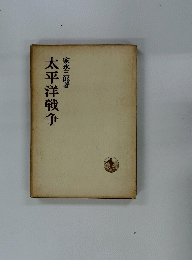 家永三郎著
太平洋戦争